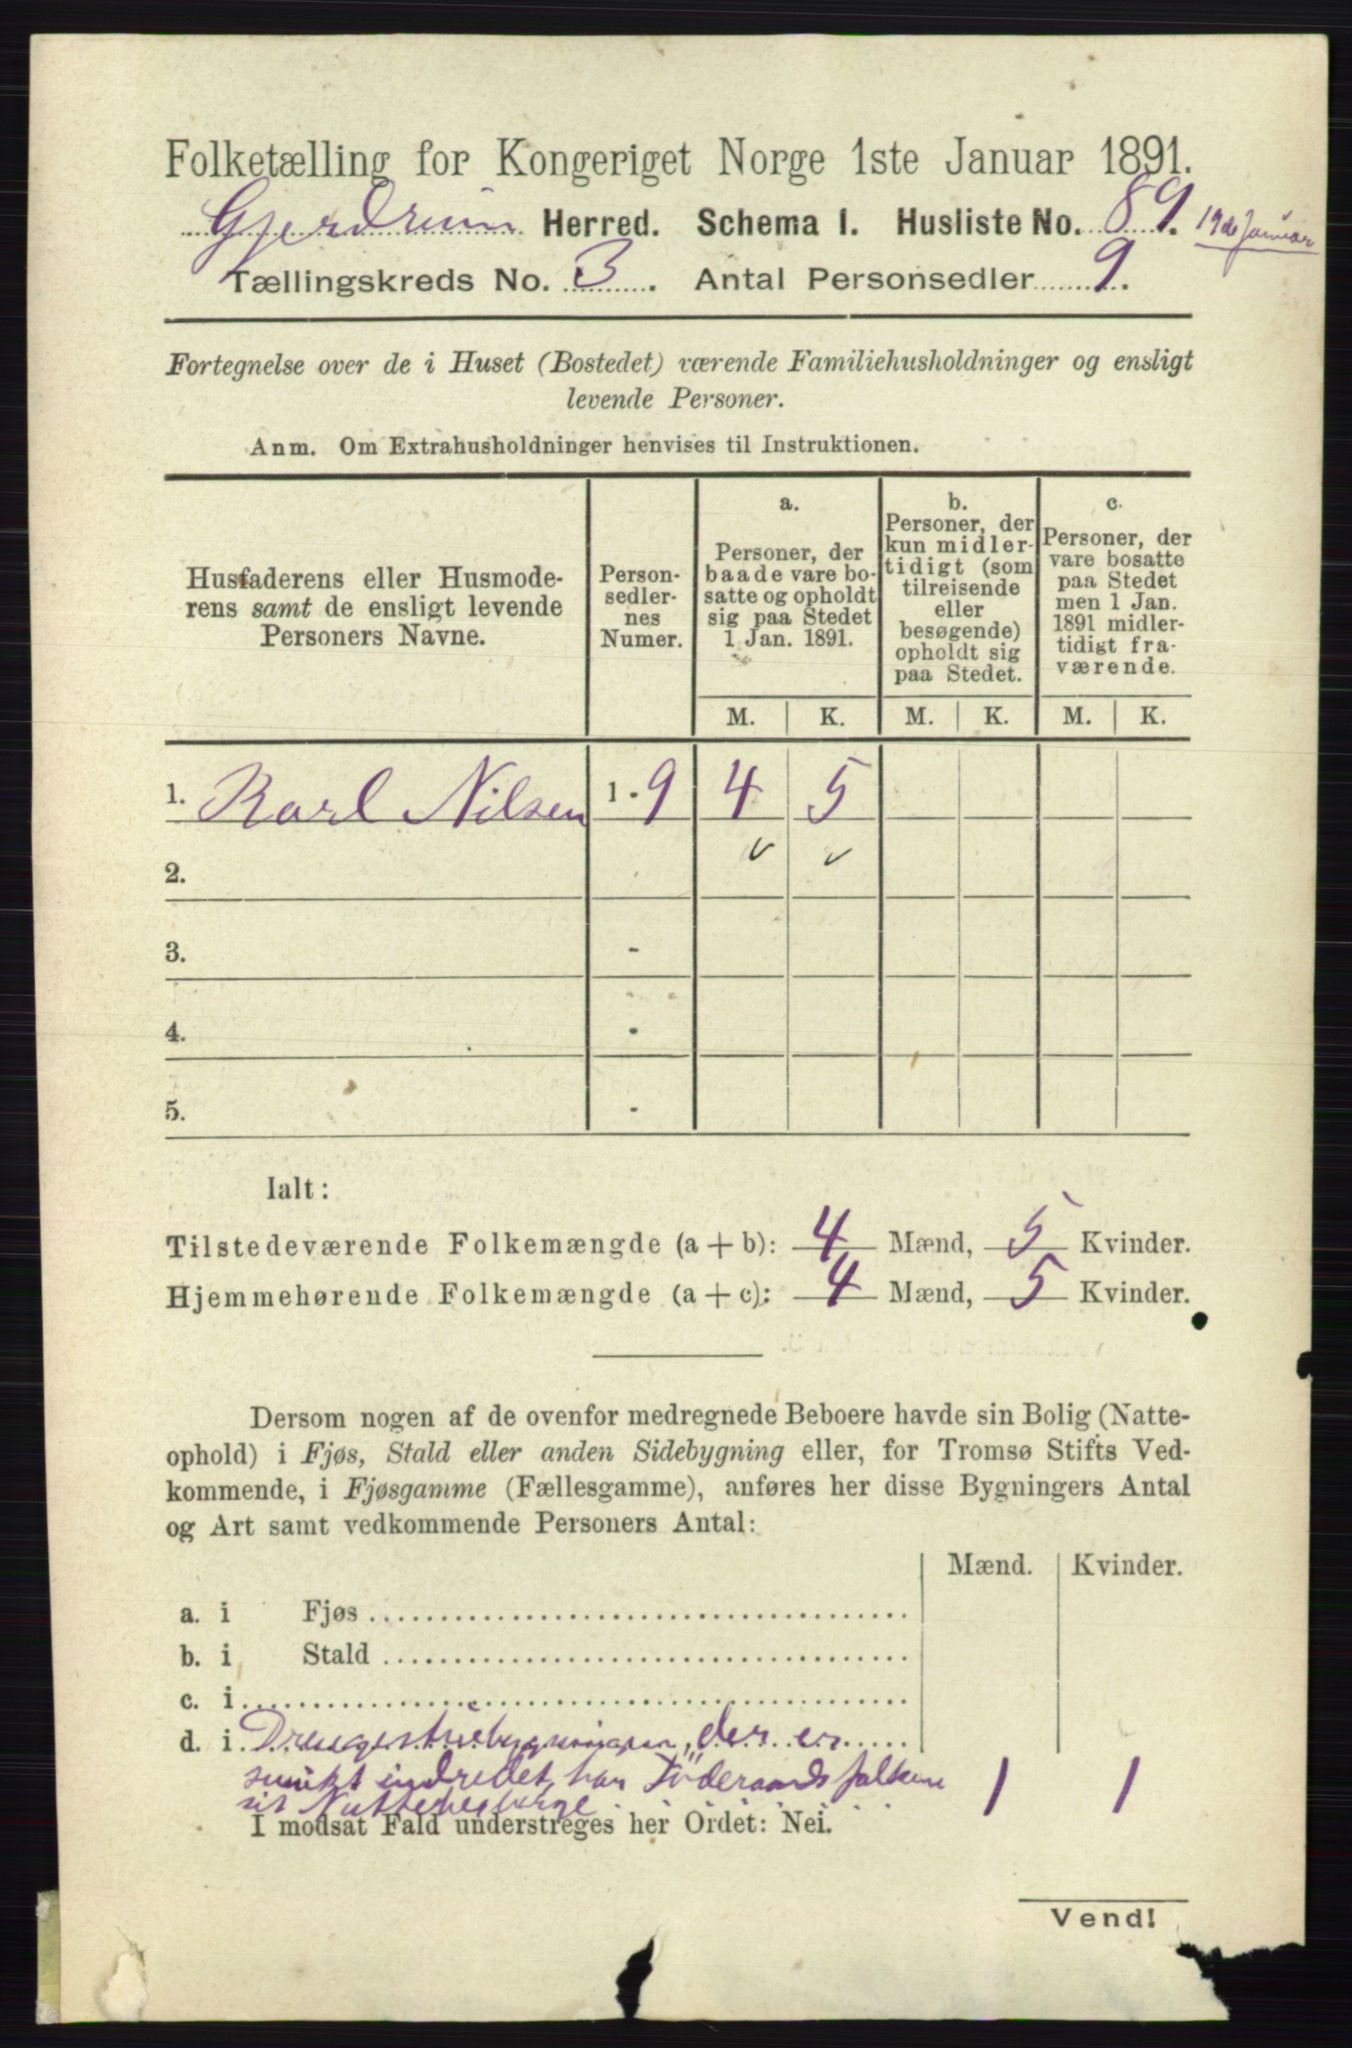 Folketælling for Kongeriget Norge 1ste Januar 1891.
Gjerdrum Herred. Schema I. Husliste No. 89. 19de Januar
Tællingskreds No. 3. Antal Personsedler 9.
Fortegnelse over de i Huset (Bostedet) værende Familiehusholdninger og ensligt
levende Personer.
Anm. Om Extrahusholdninger henvises til Instruktionen.
Husfaderens eller Husmode-
rens samt de ensligt levende
Personers Navne.
Person-
sedler-
nes
Numer.
a.
Personer, der
baade vare bo-
satte og opholdt
sig paa Stedet
1 Jan. 1891.
b.
Personer, der
kun midler-
tidigt (som
tilreisende
eller
besøgende)
opholdt sig
paa Stedet.
c.
Personer, der
vare bosatte
paa Stedet
men 1 Jan.
1891 midler-
tidigt fra-
værende.
M. K. M. K. M. K.
1. Karl Nilsen 1 - 9 4 5
2.
3. -
4. -
5. -
Ialt:
Tilstedeværende Folkemængde (a + b): 4 Mænd, 5 Kvinder.
Hjemmehørende Folkemængde (a + c): 4 Mænd, 5 Kvinder.
Dersom nogen af de ovenfor medregnede Beboere havde sin Bolig (Natte-
ophold) i Fjøs, Stald eller anden Sidebygning eller, for Tromsø Stifts Ved-
kommende, i Fjøsgamme (Fællesgamme), anføres her disse Bygningers Antal
og Art samt vedkommende Personers Antal:
Mænd. Kvinder.
a. i Fjøs
b. i Stald
c. i
d. i Drengestuebygningen, der er
smukt indredet, har Föderaadsfolkene
sit Natteherberge 1 1
I modsat Fald understreges her Ordet: Nei.
Vend!